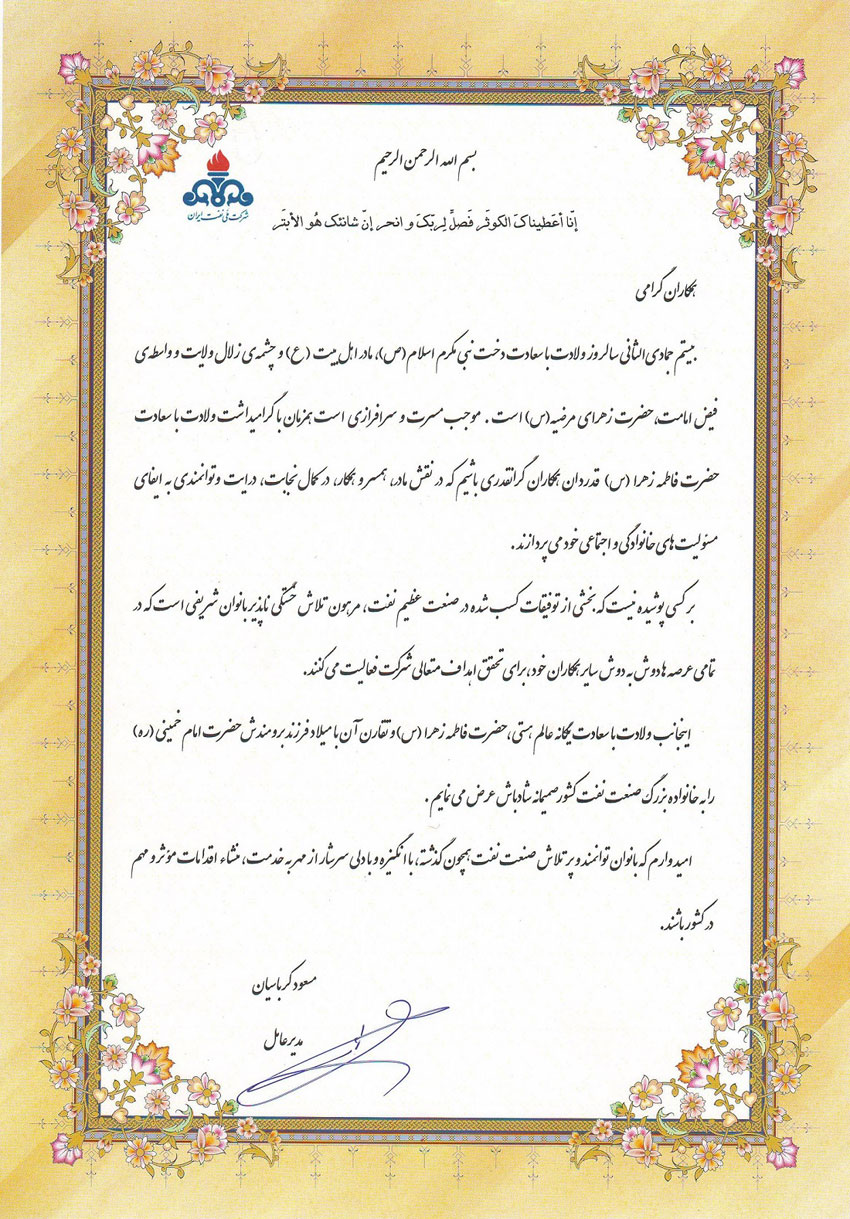 بسم الله الرحمن الرحیم
شرکت ملی نفت ایران
إنّا أعَطیناکَ الکوثَر فَصلِّ لِربّکَ و انحر إنّ شانئک هُو الأبتَر
همکاران گرامی
بیستم جمادی الثانی سالروز ولادت با سعادت دخت نبی مکرم اسلام (ص)، مادر اهل بیت (ع) و چشمه‌ی زلال ولایت و واسطه‌ی
فیض امامت، حضرت زهرای مرضیه(س) است . موجب مسرت و سرافرازی است همزمان با گرامیداشت ولادت با سعادت
حضرت فاطمه زهرا (س) قدردان همکاران گرانقدری باشیم که در نقش مادر، همسر و همکار، در کمال نجابت، درایت وتوانمندی به ایفای
مسئولیت های خانوادگی و اجتماعی خود می پردازند .
بر کسی پوشیده نیست که بخشی از توفیقات کسب شده در صنعت عظیم نفت، مرهون تلاش خستگی ناپذیر بانوان شریفی است که در
تمامی عرصه ها دوش به دوش سایر همکاران خود، برای تحقق اهداف متعالی شرکت فعالیت می کنند.
اینجانب ولادت با سعادت یگانه عالم هستی، حضرت فاطمه زهرا (س) و تقارن آن با میلاد فرزند برومندش حضرت امام خمینی (ره)
را به خانواده بزرگ صنعت نفت کشور صمیمانه شادباش عرض می نمایم .
امیدوارم که بانوان توانمند و پر تلاش صنعت نفت همچون گذشته، با انگیزه و با دلی سرشار از مهر به خدمت، منشاء اقدامات مؤثر و مهم
در کشور باشند.
مسعود کرباسیان
مدیر عامل